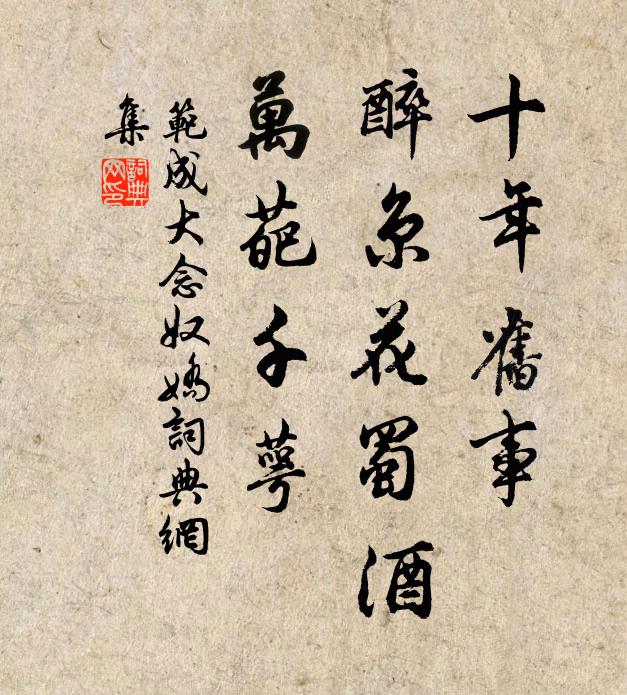 十年舊事
醉京花蜀酒
萬葩千萼
範成大念奴嬌詞典網
集
詞典
网印